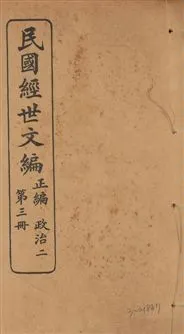 民國經世文編
正編 政治二
第三冊